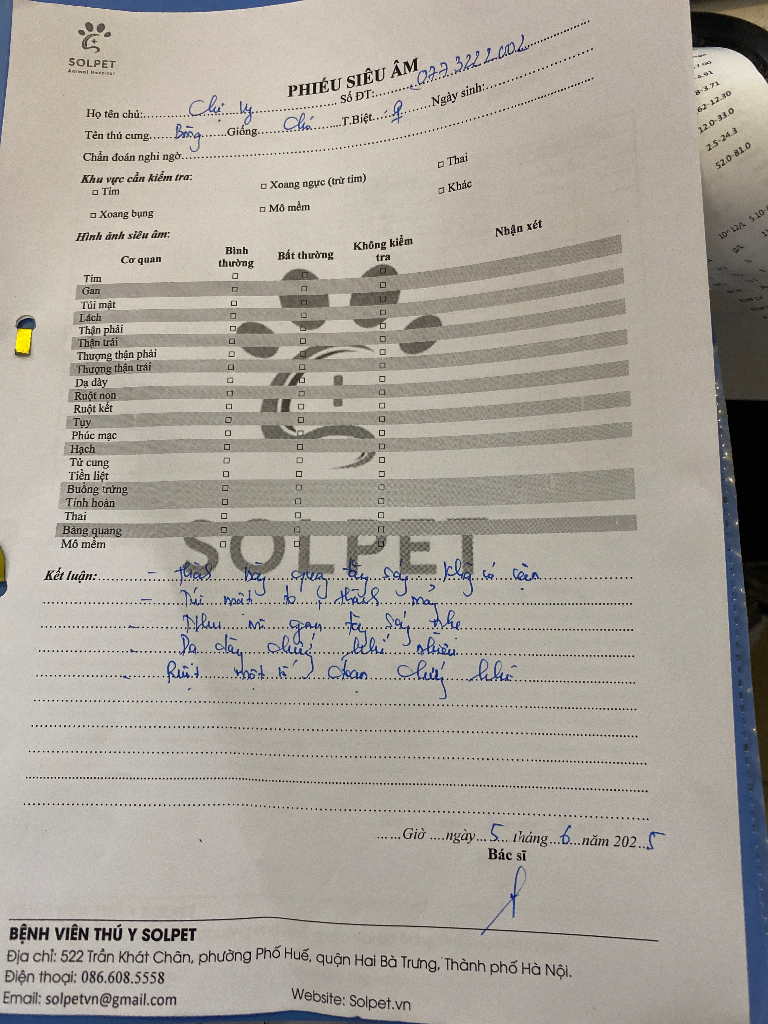 SOLPET
Animal Hospital
PHIẾU SIÊU ÂM
Họ tên chủ: Chị Vy Số ĐT: 077.3222.002
Tên thú cưng Bông Giống Chó T.Biệt ♀ Ngày sinh:
Chẩn đoán nghi ngờ
Khu vực cần kiểm tra:
□ Tim □ Xoang ngực (trừ tim) □ Thai
□ Xoang bụng □ Mô mềm □ Khác
Hình ảnh siêu âm:
Cơ quan Bình thường Bất thường Không kiểm tra Nhận xét
Tim □ □ □
Gan □ □ □
Túi mật □ □ □
Lách □ □ □
Thận phải □ □ □
Thận trái □ □ □
Thượng thận phải □ □ □
Thượng thận trái □ □ □
Dạ dày □ □ □
Ruột non □ □ □
Ruột kết □ □ □
Tụy □ □ □
Phúc mạc □ □ □
Hạch □ □ □
Tử cung □ □ □
Tiền liệt □ □ □
Buồng trứng □ □ □
Tinh hoàn □ □ □
Thai □ □ □
Bàng quang □ □ □
Mô mềm □ □ □
SOLPET
Kết luận: - thành bàng quang tăng sáng không có cặn
- Túi mật to, thành mỏng
- Nhu mô gan tăng sáng nhẹ
- Dạ dày chướng khí nhiều
- Ruột một số đoạn chướng khí
Giờ ngày 5 tháng 6 năm 2025
Bác sĩ
BỆNH VIỆN THÚ Y SOLPET
Địa chỉ: 522 Trần Khát Chân, phường Phố Huế, quận Hai Bà Trưng, Thành phố Hà Nội.
Điện thoại: 086.608.5558
Email: solpetvn@gmail.com Website: Solpet.vn
4.91
8-3.71
.62-12.30
12.0-33.0
2.5-24.3
52.0-81.0
10^12/L 5.10-